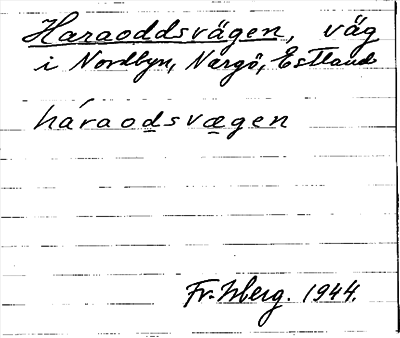 Haraoddsvägen, väg
i Nordbyn, Nargö, Estland
háraodsvægen
Fr. Isberg. 1944.